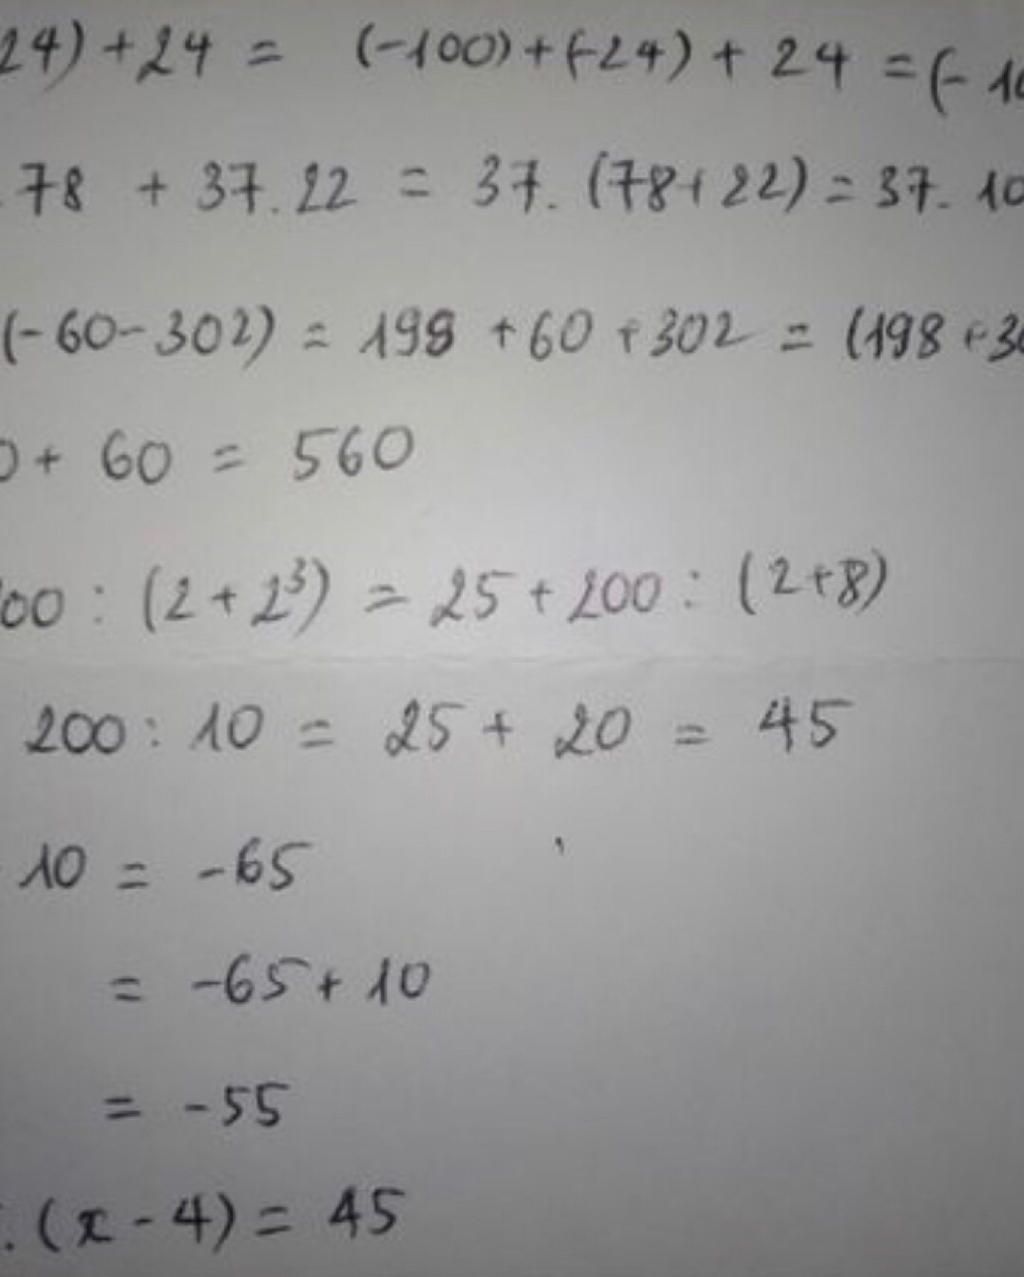 24) + 24 = (-100) + (-24) + 24 = (- 10
. 78 + 37 . 22 = 37 . (78 + 22) = 37 . 10
(-60 - 302) = 198 + 60 + 302 = (198 + 30
0 + 60 = 560
00 : (2 + 2³) = 25 + 200 : (2+8)
200 : 10 = 25 + 20 = 45
10 = -65
= -65 + 10
= -55
. (x - 4) = 45